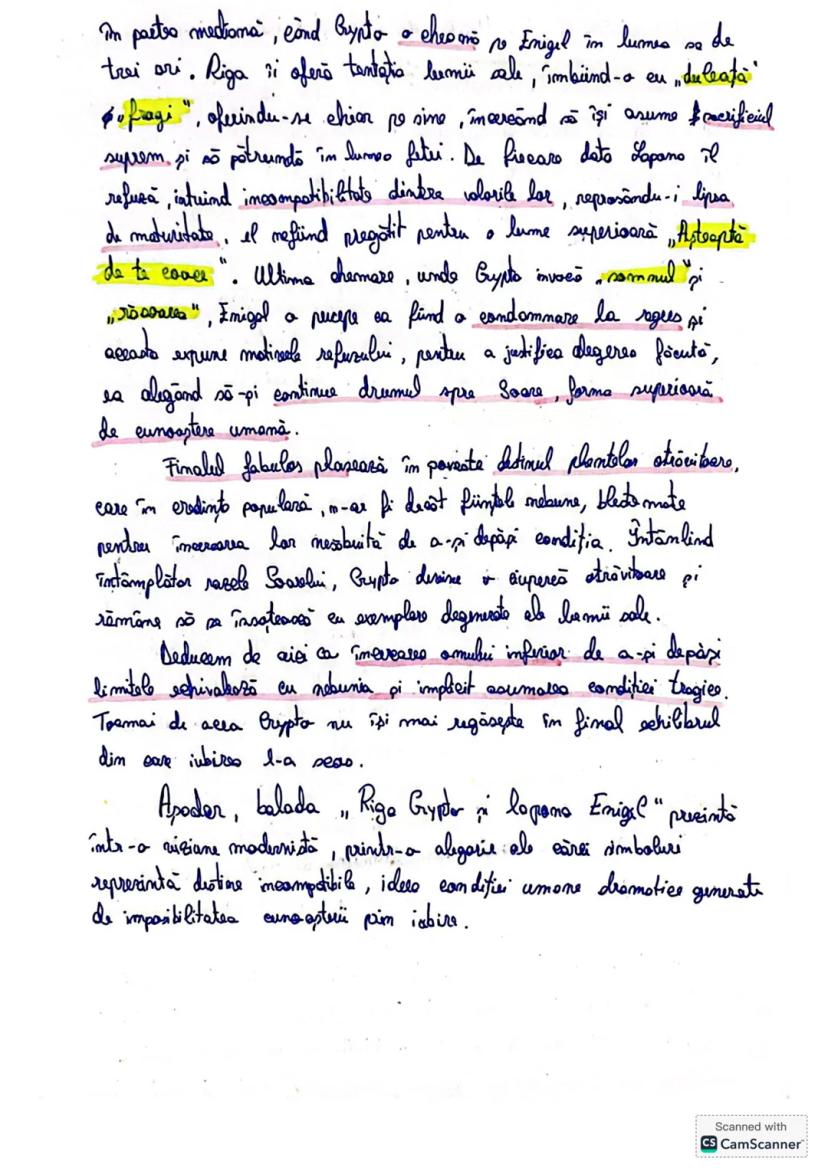 În partea mediană, când Crypto o cheamă pe Enigel în lumea sa de
trei ori. Riga îi oferă tentația lumii sale, îmbiind-o cu „dulceață"
„fragi", oferindu-se chiar pe sine, încercând să își asume sacrificiul
suprem și să pătrundă în lumea fetei. De fiecare dată Lapona îl
refuză, intuind incompatibilitate dintre valorile lor, reproșându-i lipsa
de maturitate, el nefiind pregătit pentru o lume superioară „Așteaptă
de te coace". Ultima chemare, unde Crypto invocă „somnul" și
„răcoarea", Enigel o percepe ca fiind o condamnare la regres și
aceasta expune motivele refuzului, pentru a justifica alegerea făcută,
ea alegând să-și continue drumul spre Soare, forma superioară
de cunoaștere umană.
Finalul fabulos plasează în poveste destinul plantelor otrăvitoare,
care în credința populară, n-ar fi decât ființele nebune, blestemate
pentru încercarea lor nesăbuită de a-și depăși condiția. Întâlnind
întâmplător razele Soarelui, Crypto devine o ciupercă otrăvitoare și
rămâne să se însoțească cu exemplare degenerate ale lumii sale.
Deducem de aici ca încercarea omului inferior de a-și depăși
limitele echivalează cu nebunia și implicit asumarea condiției tragice.
Tocmai de aceea Crypto nu își mai regăsește în final echilibrul
din care iubirea l-a scos.
Așadar, balada „Riga Crypto și lapona Enigel" prezintă
într-o viziune modernistă, printr-o alegorie ale cărei simboluri
reprezintă destine incompatibile, ideea condiției umane dramatice generate
de imposibilitatea cunoașterii prin iubire.
Scanned with
CS CamScanner